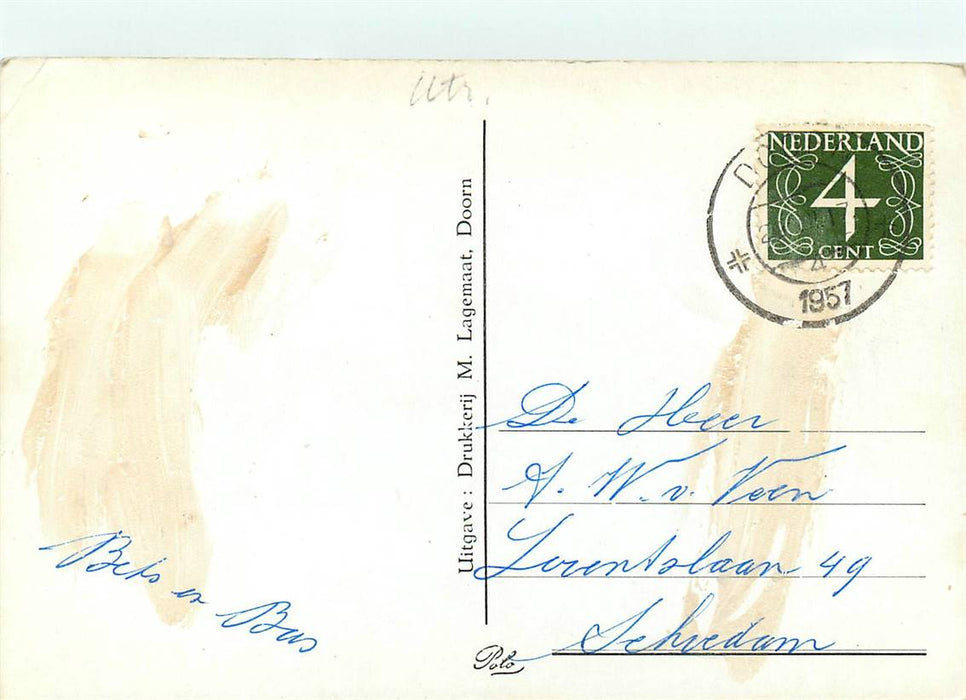 Utr.
NEDERLAND
4
CENT
1957
Uitgave: Drukkerij M. Lagemaat, Doorn
De Heer
A. W. v. Veen
Lorentzlaan 49
Schiedam
Bets en Bas
Polo